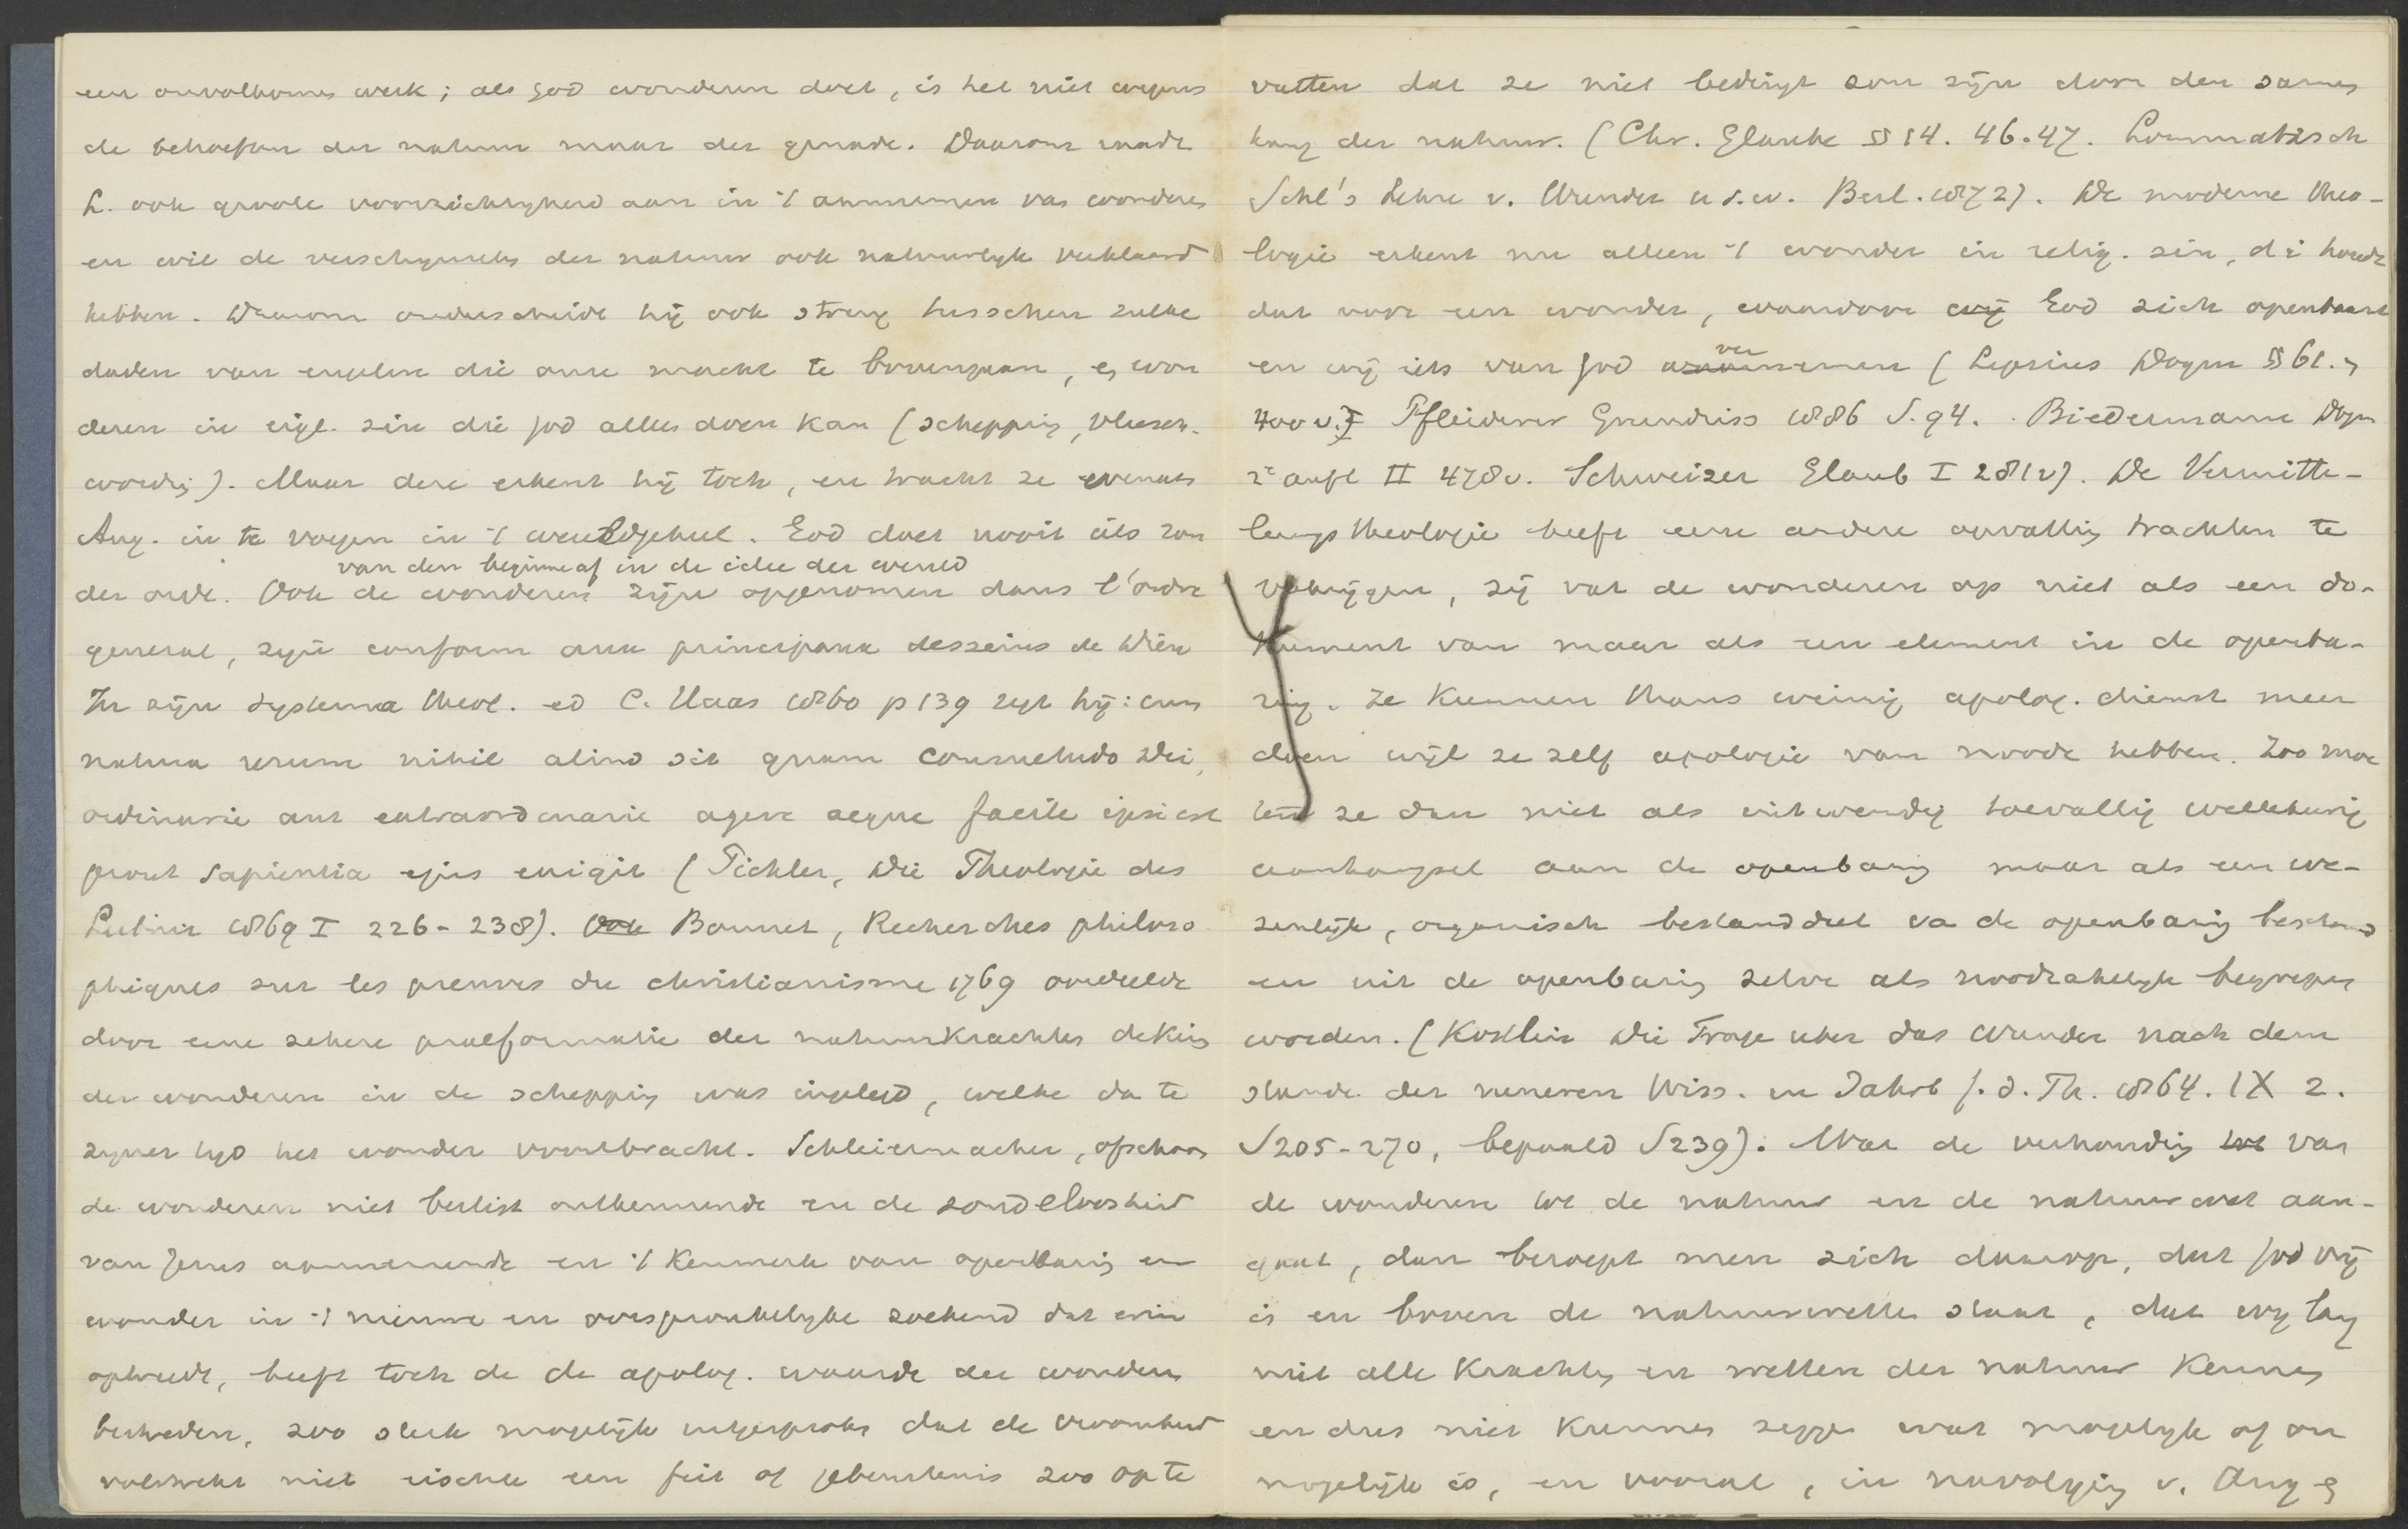 een onvolkomen werk; als God wonderen doet, is het niet wegens
de behoeften der natuur maar der genade. Daarom raadt
L. ook groote voorzichtigheid aan in 't aannemen van wonderen
en wil de verschijnselen der natuur ook natuurlijk verklaard
hebben. Daarom onderscheidt hij ook streng tusschen zulke
daden van engelen die onze macht te bovengaan, en won
deren in eigl. zin die God alleen doen kan (schepping, vleesch-
wording). Maar deze erkent hij toch, en tracht ze evenals
Aug. in te voegen in 't wereldgeheel. God doet nooit iets zon
van den beginne af in de idee der wereld
der orde. Ook de wonderen zijn opgenomen dans l'ordre
general, zijn conform aux principaux desseins de Dieu
In zijn Systema theol. ed C. Haas 1860 p 139 zegt hij: cum
natura rerum nihil aliud sit quam consuetudo Dei,
ordinarie aut extraordinarie agere aeque facile ipsi est
prout sapientia ejus exigit (Pichler, Die Theologie des
Leibniz 1869 I 226-238). Ook Bonnet, Recherches philoso
phiques sur les preuves du christianisme 1769 oordeelde
door eene zekere praeformatie der natuurkrachten de kiem
der wonderen in de schepping was ingelegd, welke da te
zijner tijd het wonder voortbracht. Schleiermacher, ofschoon
de wonderen niet beslist ontkennende en de zondeloosheid
van Jezus aannemende en 't kenmerk van openbaring en
wonder in 't nieuwe en oorspronkelijke zoekend dat erin
optreedt, heeft toch de de apolog. waarde der wonderen
bestreden, zoo sterk mogelijk uitgesproken dat de vroomheid
volstrekt niet eischte een feit of gebeurtenis zoo op te
vatten dat ze niet bedingt zou zijn door den samen
hang der natuur. (Chr. Glaube §§ 14. 46. 47. Lommatzsch
Schl's Lehre v. Wunder u.s.w. Berl. 1872). De moderne theo-
logie erkent nu alleen 't wonder in relig. zin, d i houdt
dat voor een wonder, waardoor wij God zich openbaart
ver
en wij iets van God waarnemen (Lipsius Dogm §§ 61. en
400 v. Pfleiderer Grundriss 1886 S. 94. Biedermann Dogm
2e aufl II 478v. Schweizer Glaub I 281v). De Vermitte-
lungstheologie heeft eene andere opvatting trachten te
verkrijgen, zij vat de wonderen op niet als een do-
kument van maar als een element in de openba-
ring. Ze kunnen thans weinig apolog. dienst meer
doen wijl ze zelf apologie van noode hebben. Zoo moe
ten ze dan niet als uitwendig toevallig willekeurig
aanhangsel aan de openbaring maar als een we-
zenlijk, organisch bestanddeel va de openbaring beschouwd
en uit de openbaring zelve als noodzakelijk begrepen
worden. (Köstlin Die Frage über das Wunder nach dem
stande der neueren Wiss. in Jahrb f. d. Th. 1864. IX 2.
S 205-270, bepaald S 239). Wat de verhouding tot van
de wonderen tot de natuur en de natuurwet aan-
gaat, dan beroept men zich daarop, dat God vrij
is en boven de natuurwetten staat, dat wij lang
niet alle krachten en wetten der natuur kennen
en dus niet kunnen zeggen wat mogelijk of on
mogelijk is, en vooral, in navolging v. Aug en